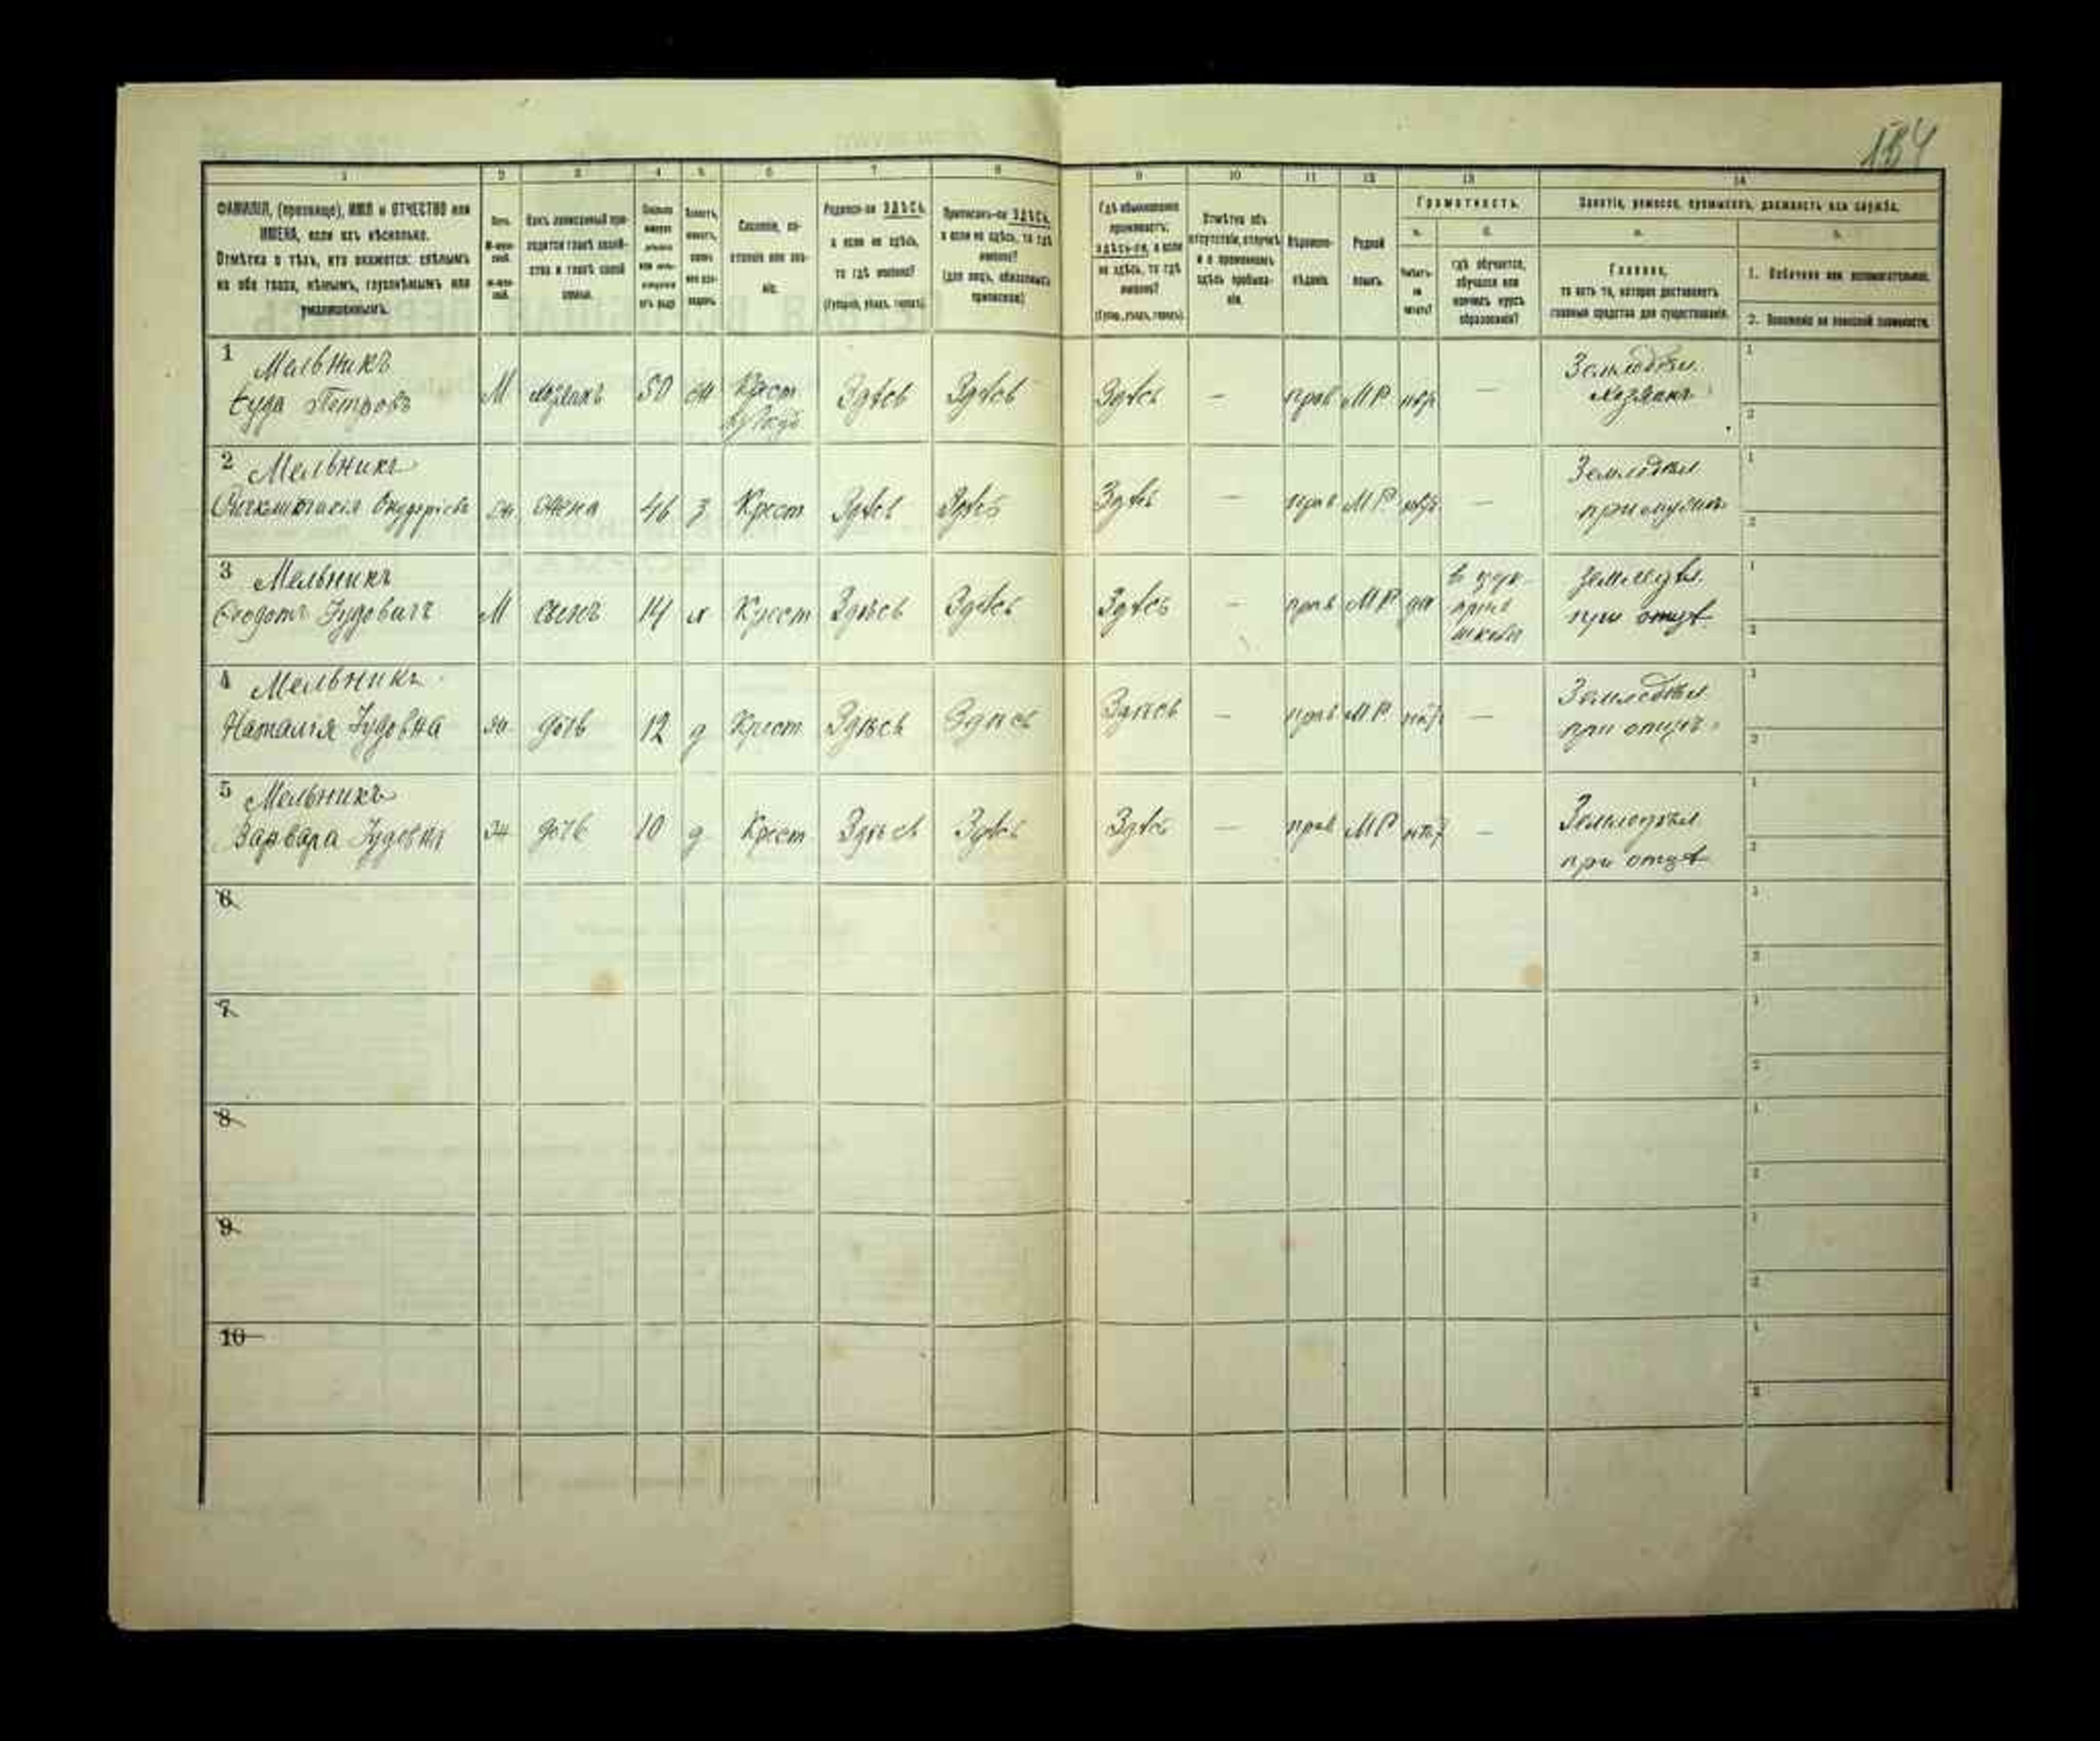 184
1 2 3 4 5 6 7 8 9 10 11 12 13 14
ФАМИЛІЯ, (прозвище), ИМЯ и ОТЧЕСТВО или
ИМЕНА, если ихъ нѣсколько.
Отмѣтка о тѣхъ, кто окажется: слѣпымъ
на оба глаза, нѣмымъ, глухонѣмымъ или
умалишеннымъ.
Родился-ли ЗДѢСЬ,
а если не здѣсь,
то гдѣ именно?
(Губернія, уѣздъ, городъ).
Приписанъ-ли ЗДѢСЬ,
а если не здѣсь, то гдѣ
именно?
(для лицъ, обязанныхъ
припискою)
Гдѣ обыкновенно
проживаетъ:
здѣсь-ли, а если
не здѣсь, то гдѣ
именно?
(Губер., уѣздъ, городъ).
Отмѣтка объ
отсутствіи, отлучкѣ
и о временномъ
здѣсь пребыва-
ніи.
Вѣроиспо-
вѣданіе.
Родной
языкъ.
Грамотность.
а. б.
Умѣетъ-
ли
читать?
гдѣ обучается,
обучался или
кончилъ курсъ
образованія?
Занятіе, ремесло, промыселъ, должность или служба.
а. б.
Главное,
то есть то, которое доставляетъ
главныя средства для существованія.
1. Побочное или вспомогательное.
2. Положеніе по воинской повинности.
1 Мельникъ
Іуда Петровъ
М хозяинъ 50 Крест Здѣсь Здѣсь Здѣсь — прав МР — Земледѣл. хозяинъ 1 2
2 Мельникъ
жена 46 З Крест Здѣсь Здѣсь Здѣсь — прав МР — Земледѣл при мужѣ 1 2
3 Мельникъ
Ѳеодотъ Іудовичъ
М сынъ 14 х Крест Здѣсь Здѣсь Здѣсь — прав МР да школѣ земледѣл. при отцѣ 1 2
4 Мельникъ
Наталія Іудовна
дочь 12 д Крест Здѣсь Здѣсь Здѣсь — прав МР — Земледѣл при отцѣ 1 2
5 Мельникъ
Варвара Іудовна
дочь 10 д Крест Здѣсь Здѣсь Здѣсь — прав МР — Земледѣл при отцѣ 1 2
6 1 2
7 1 2
8 1 2
9 1 2
10 1 2